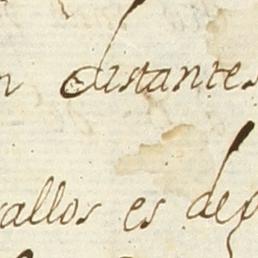 n distantes
vallos es dep